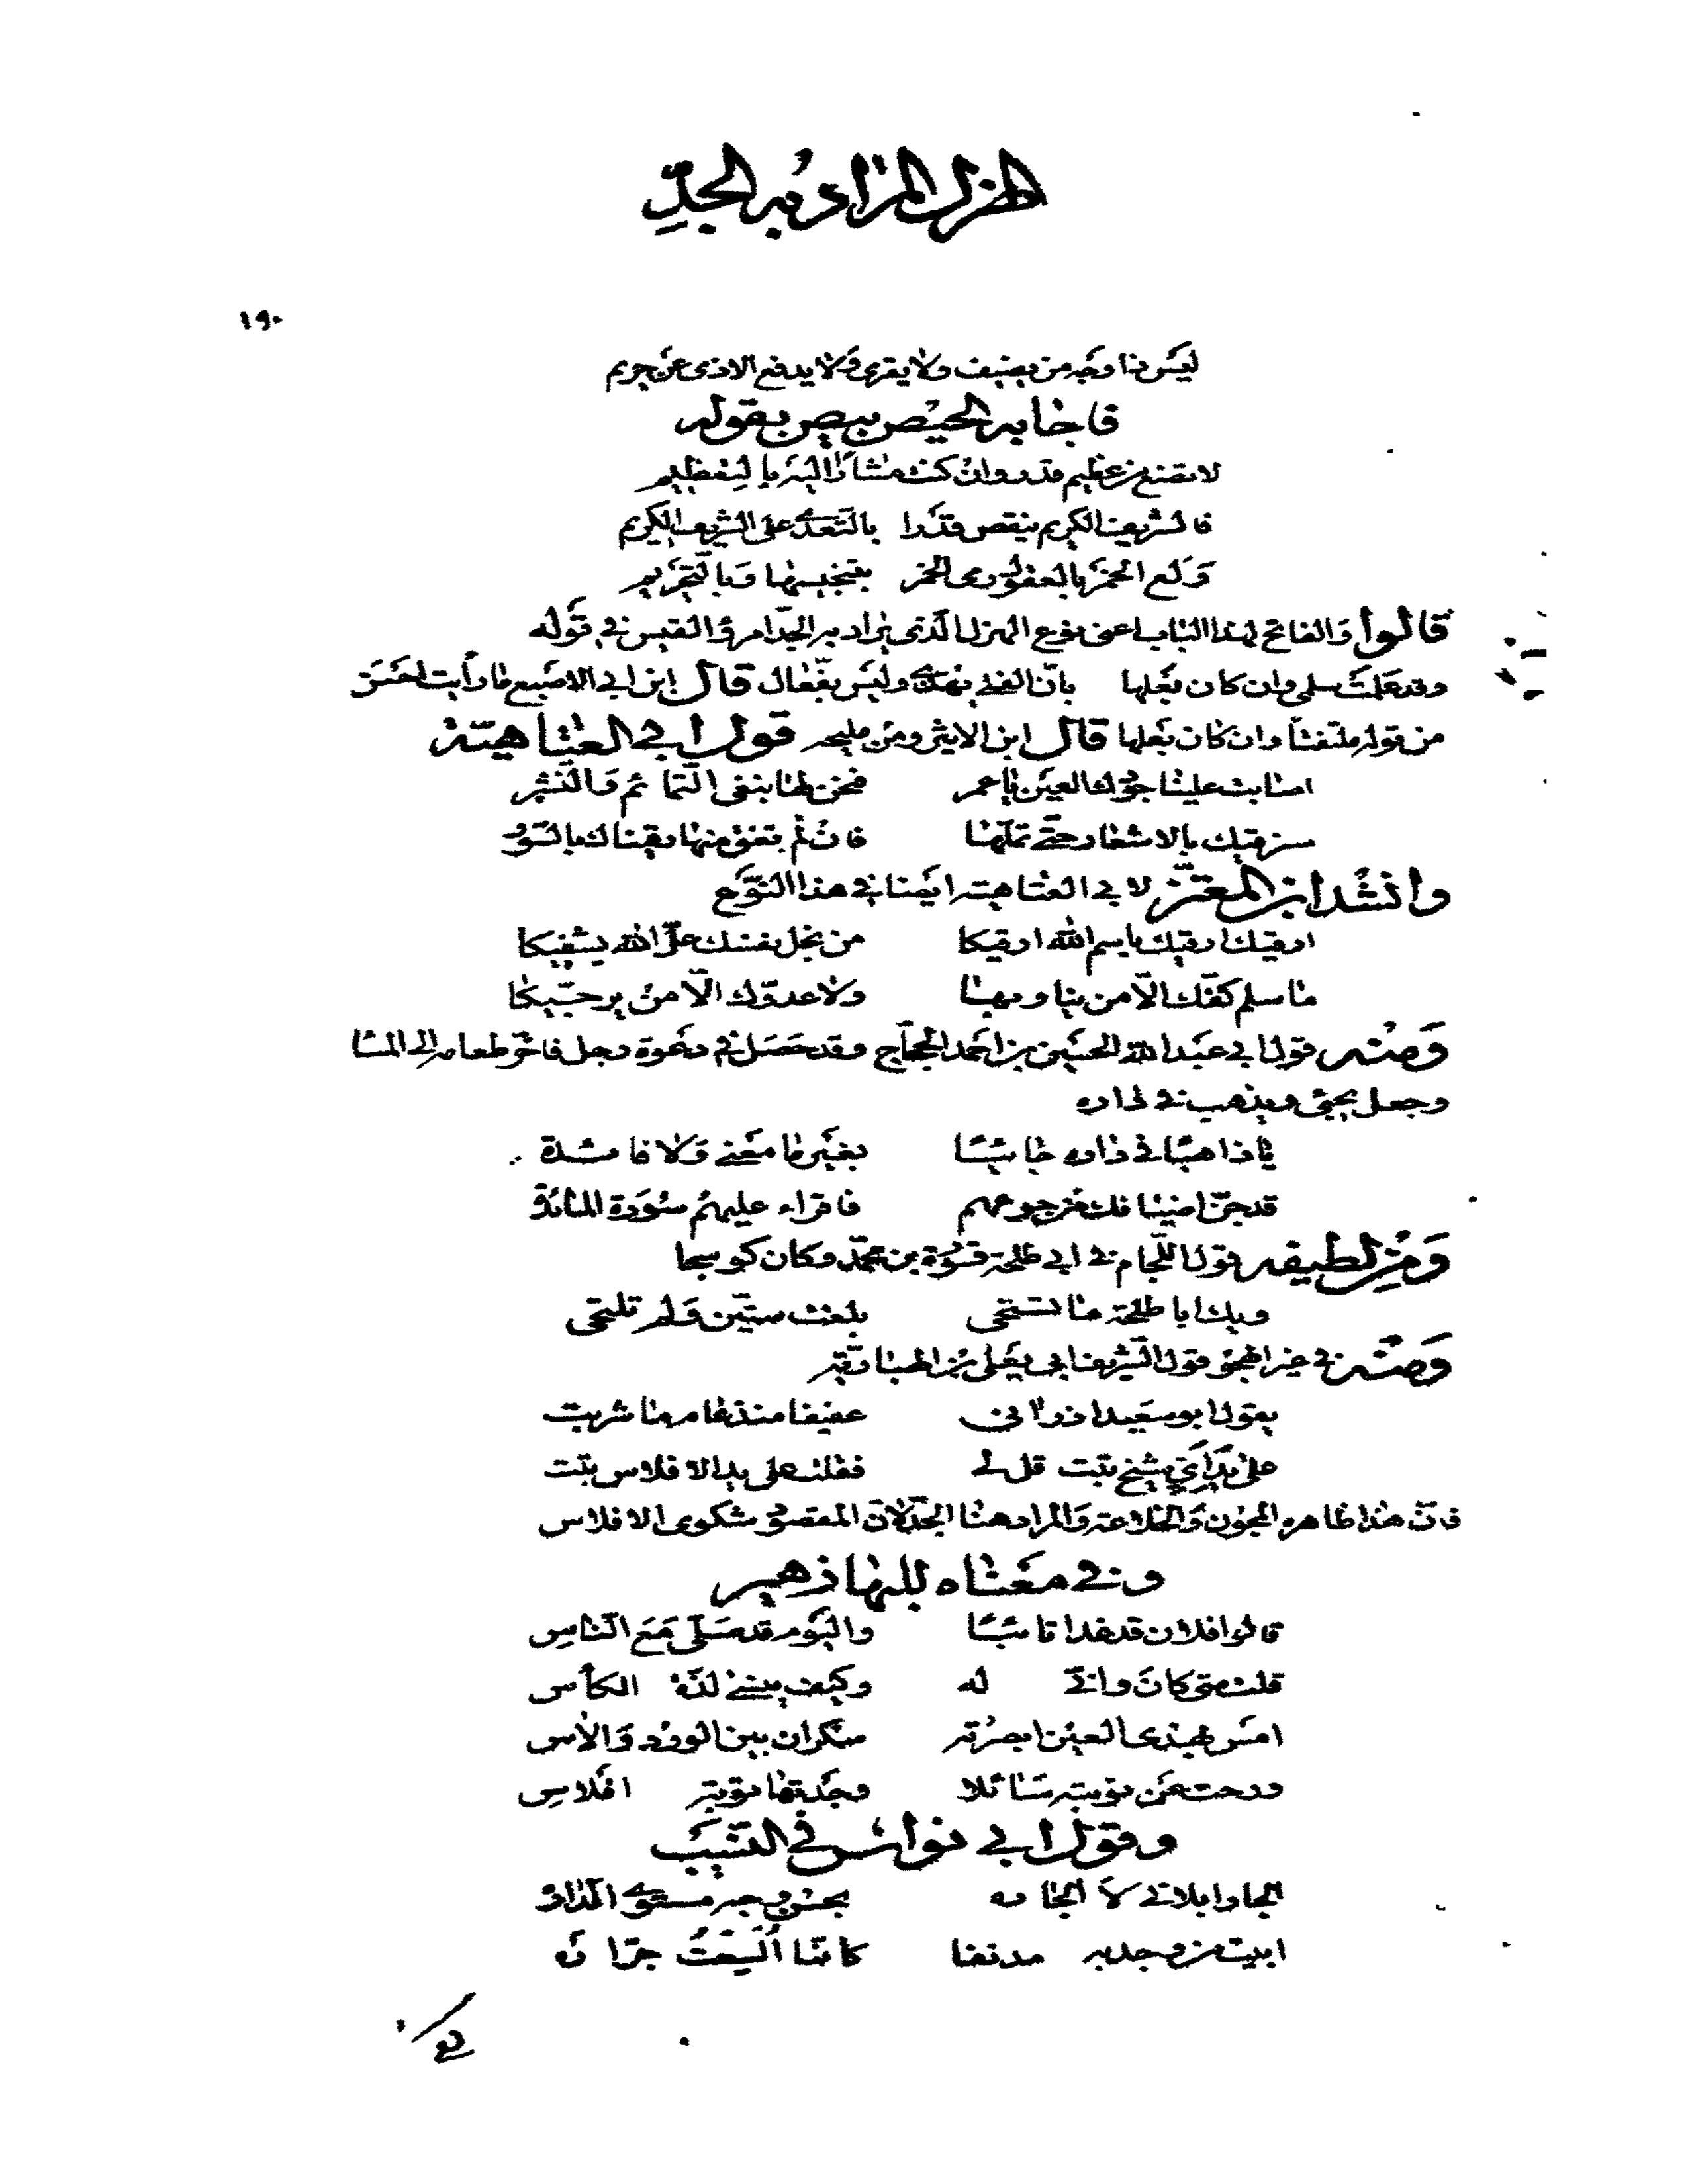 الهزل المراد به الجد
١٩٠
ليس ذا وجه من يضيف ولا يقرى ولا يدفع الاذى عن حريم
فاجابه الحيص بيص بقوله
لا تضع من عظيم قدر وان كنت مشارا اليه بالتعظيم
فالشريف الكريم ينقص قدرا بالتعدى على الشريف الكريم
ولع الخمر بالعقول رمى الخمر بتنجيسها وبالتحريم
قالوا والفاتح لهذا الباب اعنى نوع الهزل الذى يراد به الجد امرؤ القيس فى قوله
وقد علمت سلمى وان كان بعلها بان الفتى يهذى وليس بفعال قال ابن ابى الاصبع ما رأيت احسن
من قوله ملتفتا وان كان بعلها قال ابن الاثير ومن مليحه قول ابى العتاهية
اصابت علينا جودك العين يا عمر فنحن لها نبغى التمائم والنشر
سنرقيك بالاشعار حتى تملها فان لم تفق منها رقيناك بالسور
وانشد ابن المعتز لابى العتاهية ايضا فى هذا النوع
ارقيك ارقيك باسم الله ارقيكا من بخل نفسك عل الله يشفيكا
ما سلم كفك الا من يناولها ولا عدوك الا من يرجيكا
ومنه قول ابى عبد الله الحسين بن احمد الحجاج وقد حصل فى دعوة رجل فاخر طعامه الى المسا
وجعل يجئ ويذهب فى داره
يا ذاهبا فى داره جائيا بغير ما معنى ولا فائدة
قد جن اضيافك من جوعهم فاقراء عليهم سورة المائدة
ومن لطيفه قول اللجام فى ابى طلحة قسورة بن محمد وكان كوسجا
ويك ابا طلحة ما تستحى بلغت ستين ولم تلتحى
ومنه فى غير الهجو قول الشريف ابى يعلى بن الهبارية
يقول ابو سعيد اذ رانى عفيفا منذ عام ما شربت
على يد اى شيخ تبت قل لى فقلت على يد الافلاس تبت
فان هذا ظاهره المجون والخلاعة والمراد هنا الجد لان المقصود شكوى الافلاس
وفى معناه للبها زهير
قالوا فلان قد غدا تائبا واليوم قد صلى مع الناس
قلت متى كان وانى له وكيف ينسى لذة الكأس
امس بهذى العين ابصرته سكران بين الورد والاس
ورحت عن توبته سائلا وجدتها توبة افلاس
وقول ابى نواس فى التشبيب
ابيت من وجد به مدنفا كانما السعت جرارة